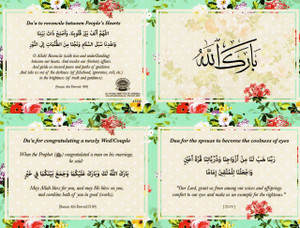 Du'a to reconcile between People's Hearts
اللَّهُمَّ أَلِّفْ بَيْنَ قُلُوبِنَا، وَأَصْلِحْ ذَاتَ بَيْنِنَا
وَاهْدِنَا سُبُلَ السَّلَامِ وَنَجِّنَا مِنَ الظُّلُمَاتِ إِلَى النُّورِ
O Allah! Reconcile (with love and understanding)
between our hearts. And resolve our (broken) affairs.
And guide us toward peace and paths of guidance.
And take us out of the darkness (of falsehood, ignorance, evil, etc.)
to the brightness (of truth and guidance).
بارك الله
Du'a for congratulating a newly Wed/Couple
When the Prophet (ﷺ) congratulated a man on his marriage,
he said:
بَارَكَ اللَّهُ لَكَ وَبَارَكَ عَلَيْكُمَا وَجَمَعَ بَيْنَكُمَا فِي خَيْرٍ
May Allah bless for you, and may He bless on you,
and combine both of you in good (works).
Dua for the spouse to become the coolness of eyes
رَبَّنَا هَبْ لَنَا مِنْ أَزْوَاجِنَا وَذُرِّيَّاتِنَا قُرَّةَ أَعْيُنٍ
وَاجْعَلْنَا لِلْمُتَّقِينَ إِمَامًا
"Our Lord, grant us from among our wives and offsprings,
comfort to our eyes and make us an example for the righteous."